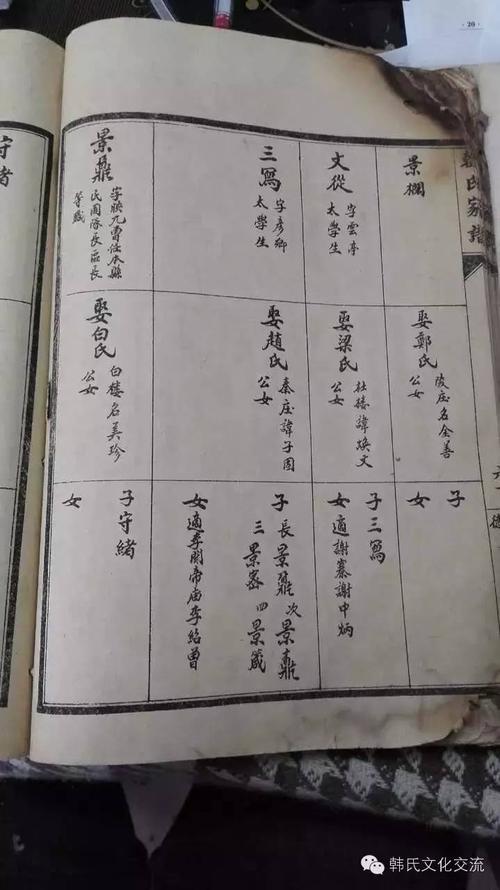 韓氏家譜
景欄
娶鄭氏
陵庄名全善
公女
子
女
文從
字雲亭
太學生
娶梁氏
杜樓諱煥文
公女
子三寫
女適謝寨謝中炳
三寫
字彥卿
太學生
娶趙氏
秦庄諱子固
公女
子長景鼐次景鼎
三景密四景箴
女適李關帝庙李紹曾
景鼎
字騋九曹任本縣
民團隊長區長
等職
娶白氏
白樓名美珍
公女
子守緒
女
守緒
20
韩氏文化交流